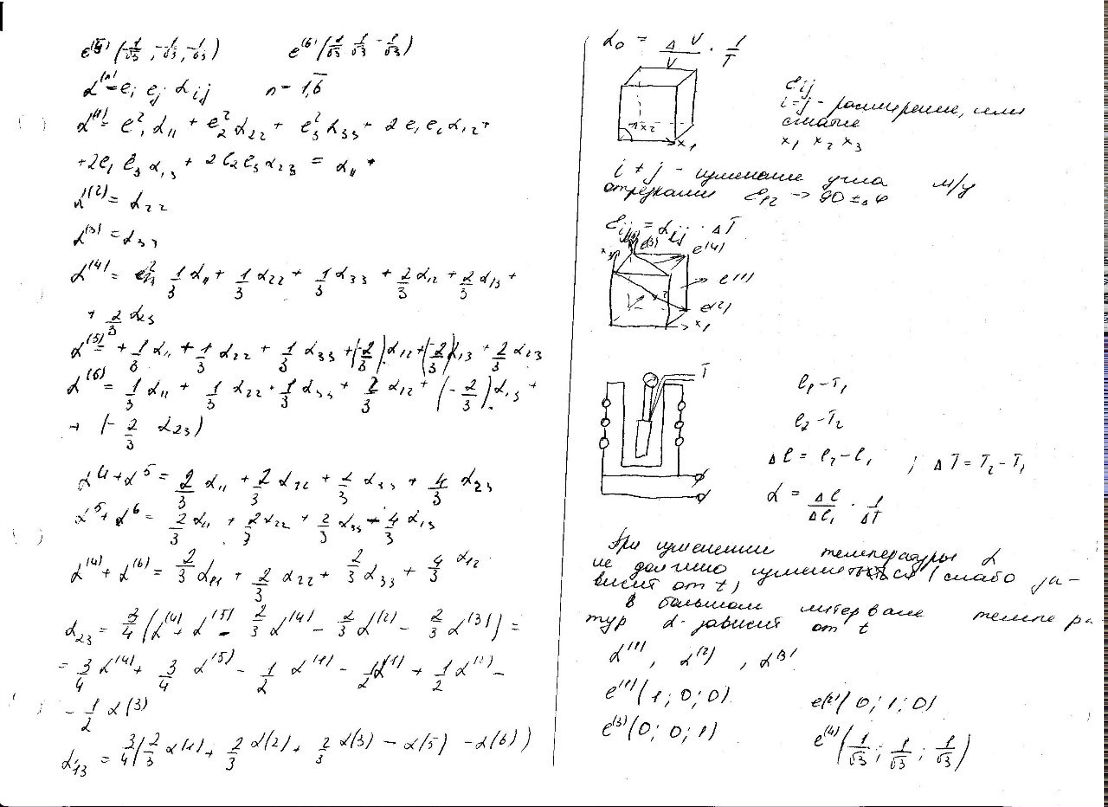 e⁽⁵⁾(-1/√3, -1/√3, -1/√3) e⁽⁶⁾(1/√3 1/√3 -1/√3)
α⁽ⁿ⁾ = eᵢ eⱼ αᵢⱼ n = 1,6
α⁽¹⁾ = e₁² α₁₁ + e₂² α₂₂ + e₃² α₃₃ + 2 e₁ e₂ α₁₂ +
+ 2e₁ e₃ α₁₃ + 2 e₂ e₃ α₂₃ = α₁₁ +
α⁽²⁾ = α₂₂
α⁽³⁾ = α₃₃
α⁽⁴⁾ = 1/3 α₁₁ + 1/3 α₂₂ + 1/3 α₃₃ + 2/3 α₁₂ + 2/3 α₁₃ +
+ 2/3 α₂₃
α⁽⁵⁾ = + 1/3 α₁₁ + 1/3 α₂₂ + 1/3 α₃₃ + (-2/3) α₁₂ + (-2/3) α₁₃ + 2/3 α₂₃
α⁽⁶⁾ = 1/3 α₁₁ + 1/3 α₂₂ + 1/3 α₃₃ + 2/3 α₁₂ + (-2/3) α₁₃ +
+ (-2/3 α₂₃)
α⁴ + α⁵ = 2/3 α₁₁ + 2/3 α₂₂ + 2/3 α₃₃ + 4/3 α₂₃
α⁵ + α⁶ = 2/3 α₁₁ + 2/3 α₂₂ + 2/3 α₃₃ - 4/3 α₁₃
α⁽⁴⁾ + α⁽⁶⁾ = 2/3 α₁₁ + 2/3 α₂₂ + 2/3 α₃₃ + 4/3 α₁₂
α₂₃ = 3/4 (α⁽⁴⁾ + α⁽⁵⁾ - 2/3 α⁽¹⁾ - 2/3 α⁽²⁾ - 2/3 α⁽³⁾) =
= 3/4 α⁽⁴⁾ + 3/4 α⁽⁵⁾ - 1/2 α⁽¹⁾ - 1/2 α⁽¹⁾ + 1/2 α⁽⁾ -
- 1/2 α(3)
α₁₃ = 3/4 (2/3 α(1) + 2/3 α(2) + 2/3 α(3) - α(5) - α(6))
α₀ = ΔV/V · 1/T
x₂ x₁
eᵢⱼ
i=j - расширение, или
сжатие
x₁ x₂ x₃
i ≠ j - изменение угла м/у
отрезками e₁₂ → 90 ± Δφ
eᵢⱼ = αᵢⱼ · ΔT
x₃ e(3) e(4)
e(1)
x₂ e(2)
x₁
T
l₁ - T₁
l₂ - T₂
Δl = l₂ - l₁ ; ΔT = T₂ - T₁
α = Δl/Δl₁ · 1/ΔT
При изменении температуры α
не должно изменяться (слабо за-
висит от t)
в большом интервале темпера
тур α - зависит от t
α⁽¹⁾, α⁽²⁾, α⁽³⁾
e⁽¹⁾(1; 0; 0) e⁽²⁾(0; 1; 0)
e⁽³⁾(0; 0; 1) e⁽⁴⁾(1/√3; 1/√3; 1/√3)